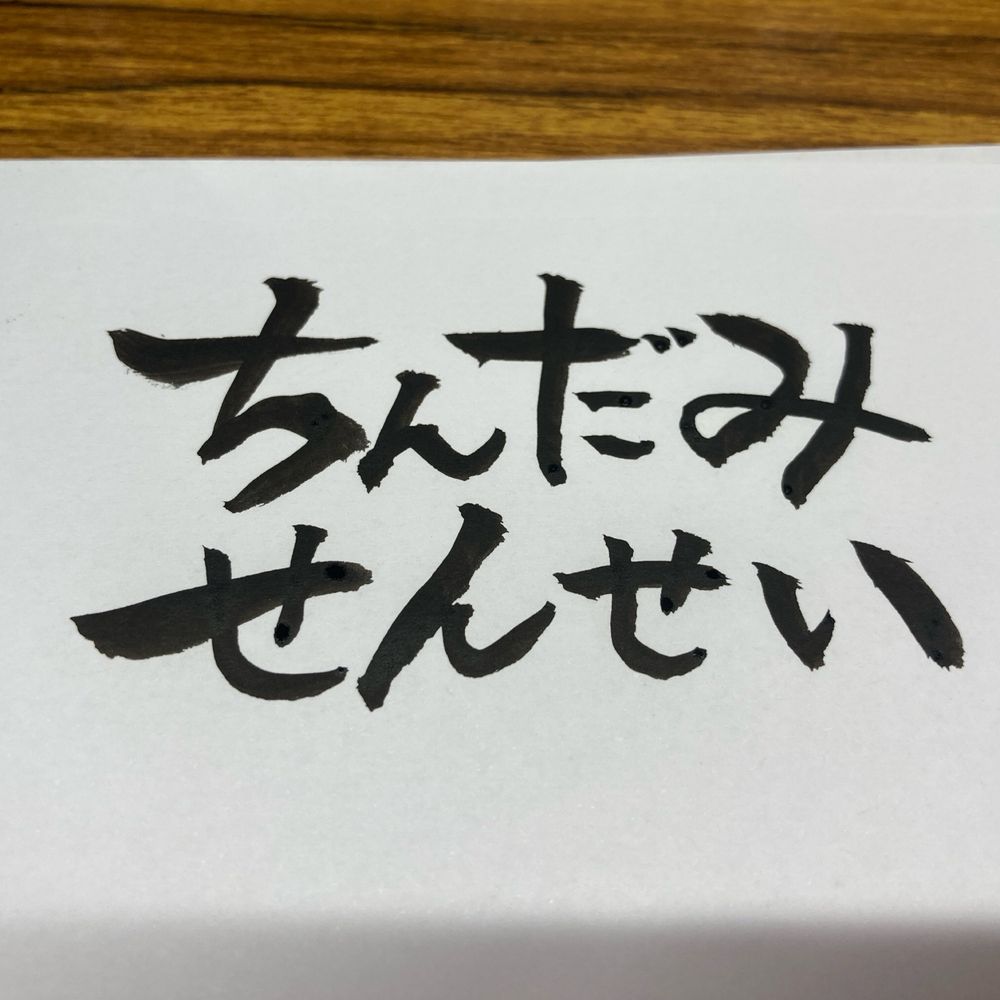 ちんだみ
せんせい